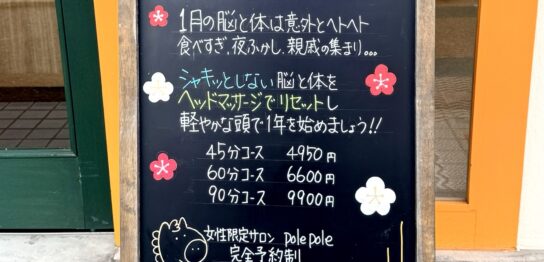 1月の脳と体は意外とヘトヘト
食べすぎ、夜ふかし、親戚の集まり...
シャキッとしない脳と体を
ヘッドマッサージでリセットし
軽やかな頭で1年を始めましょう!!
45分コース 4950円
60分コース 6600円
90分コース 9900円
女性限定サロン pole pole
完全予約制